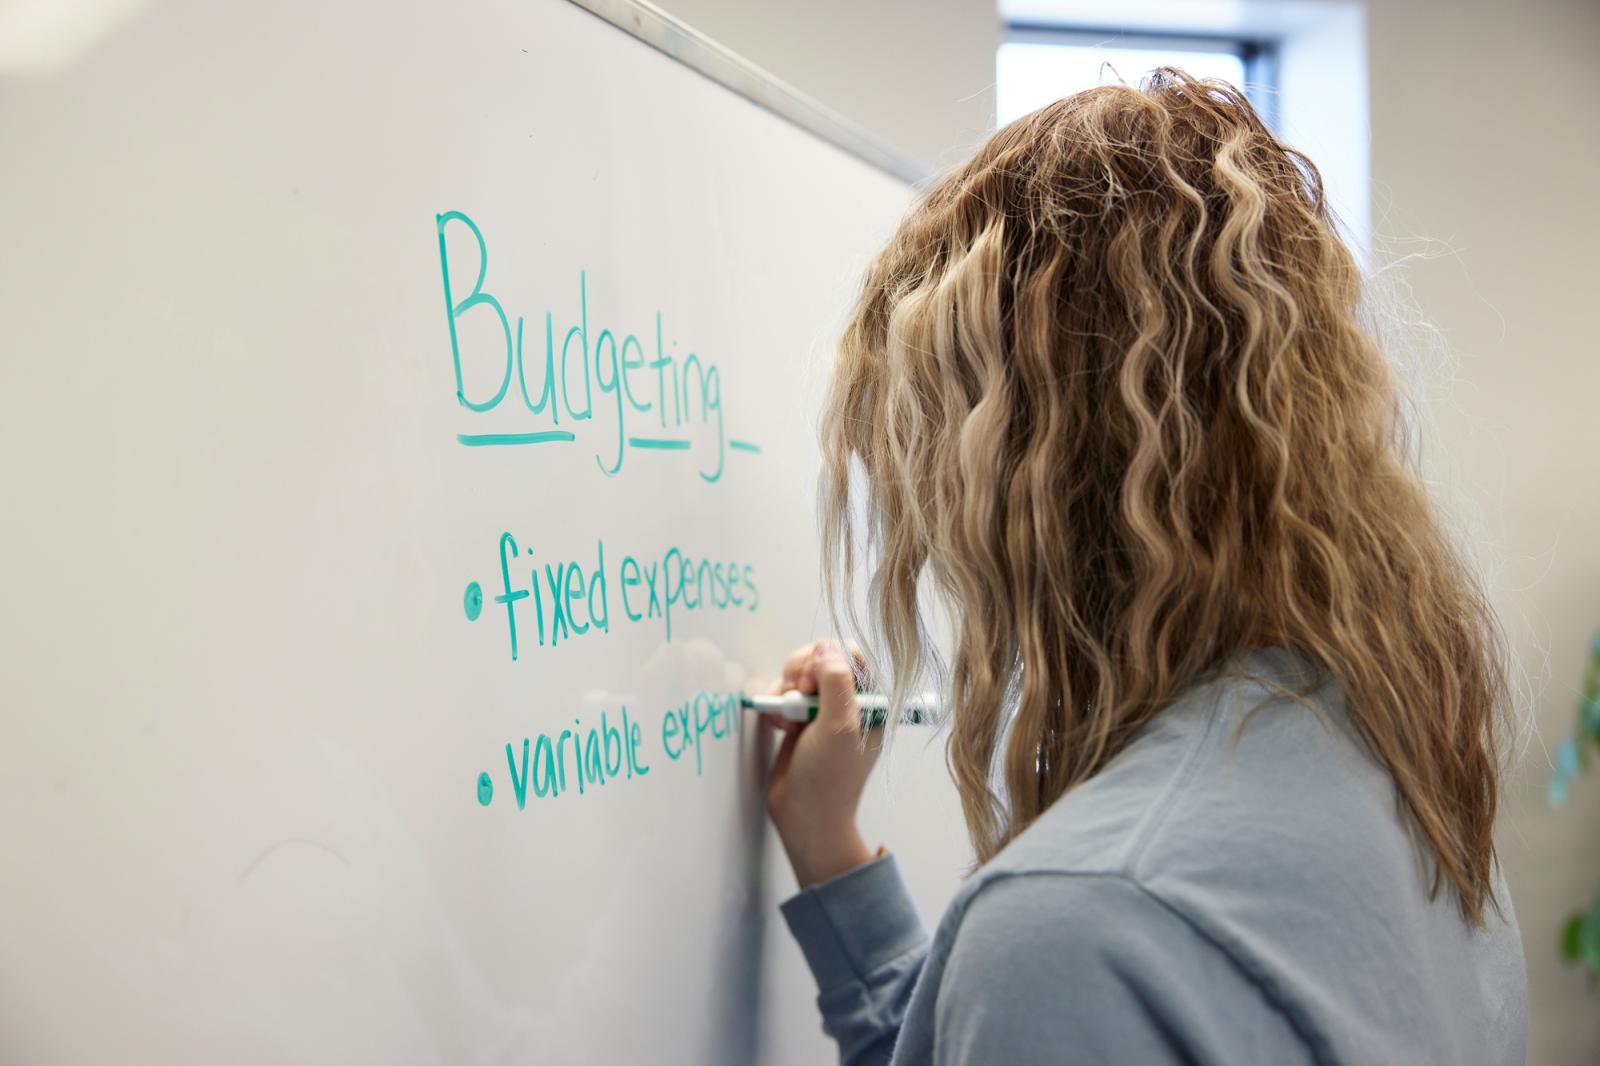 Budgeting
• fixed expenses
• variable expen